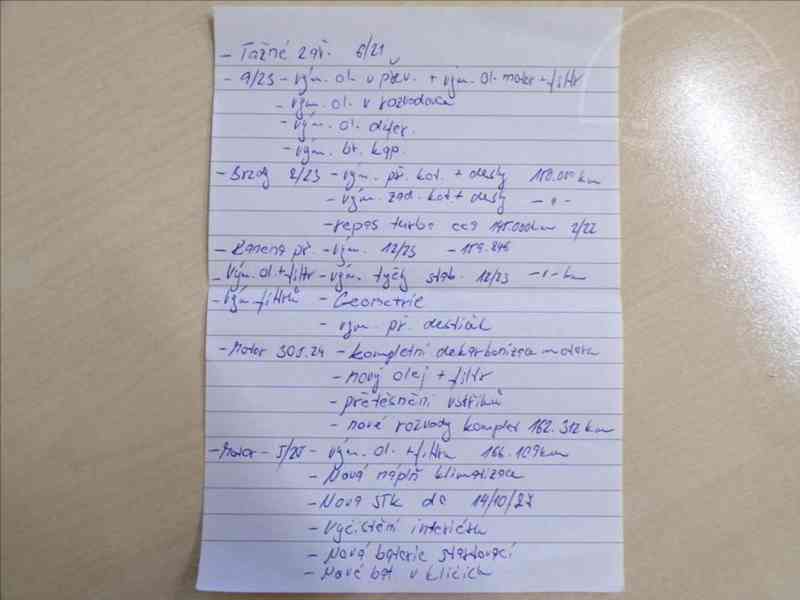 - Tažné zař. 6/21
- 9/23 - vým. ol. v přev. + vým. ol. motor + filtr
- vým. ol. v rozvodovce
- vým. ol. difer.
- vým. br. kap.
- Brzdy 2/23 - vým. př. kot. + desky 150.000 km
- vým. zad. kot + desky - " -
- repas turba cca 145.000km 2/22
- Ramena př. - vým. 12/23 - 159.846
- Vým. ol. + filtr - vým. tyčky stab. 12/23 - " - km
- Vým. filtrů - Geometrie
- vým. př. destiček
- Motor 30.5.24 - kompletní dekarbonizace motoru
- nový olej + filtr
- přetěsnění vstřiků
- nové rozvody komplet 162.312 km
- Motor - 5/25 - vým. ol. + filtru 166.109km
- Nová náplň klimatizace
- Nová STK do 14/10/27
- Vyčištění interiéru
- Nová baterie startovací
- Nové bat v klíčích